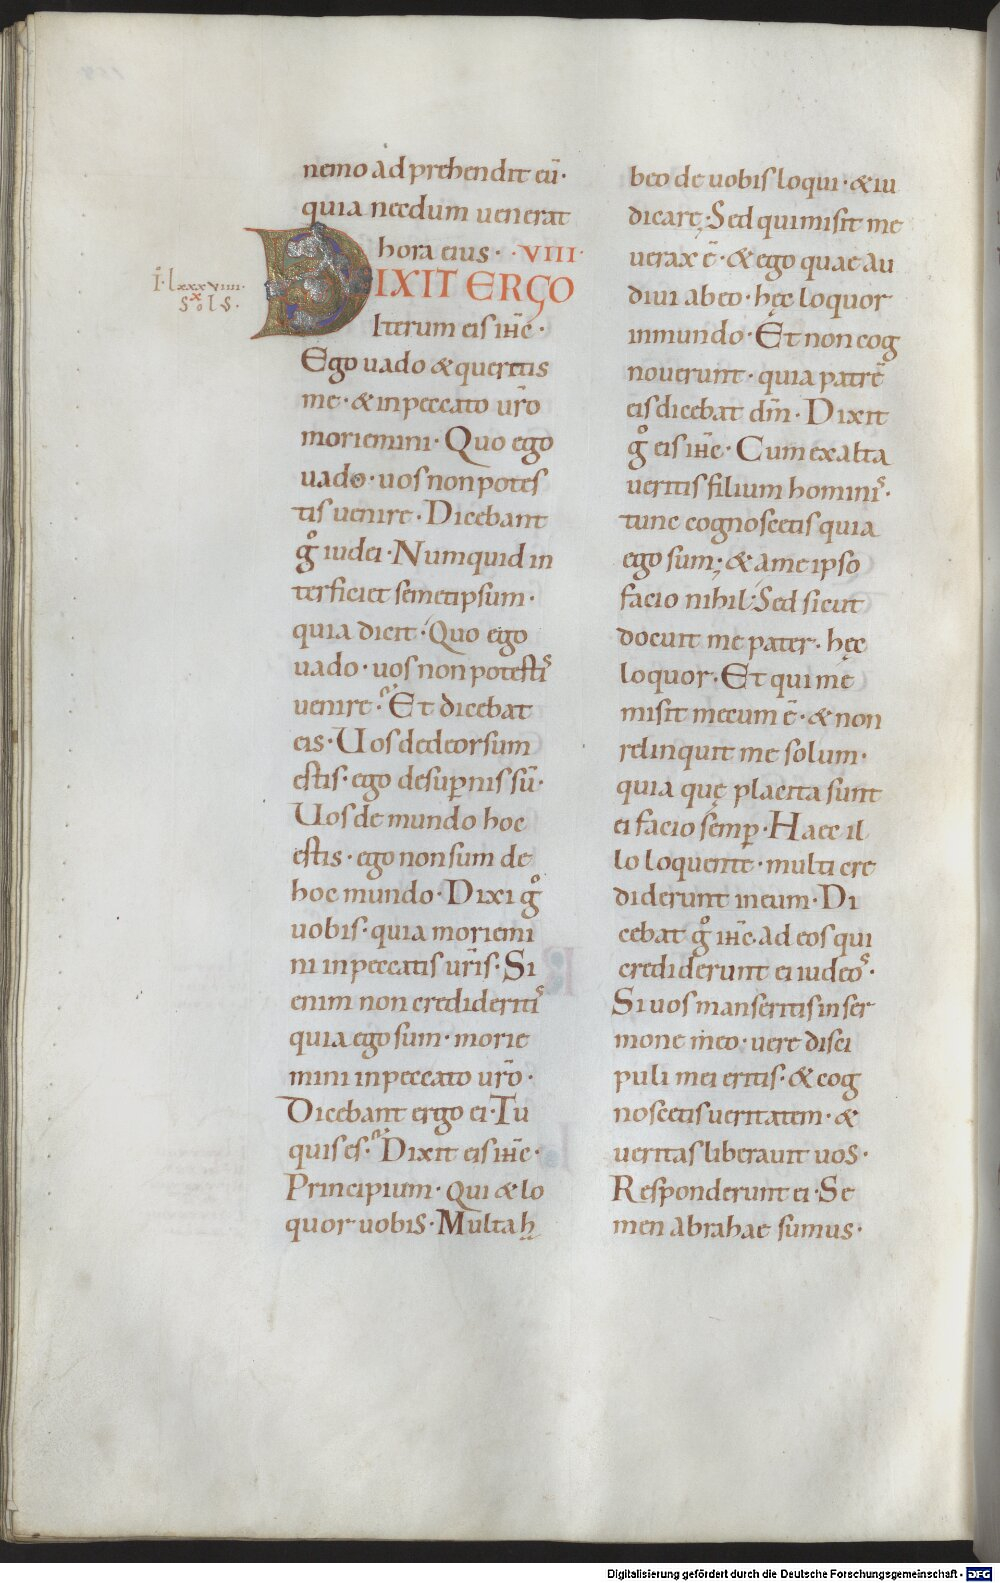 nemo adprehendit eū·
quia necdum uenerat
hora eius· ·VIII·
DIXIT ERGO
Iterum eis ihc̄·
Ego uado & queretis
me· & inpeccato ur̄o
moriemini· Quo ego
uado· uos non potes
tis uenire· Dicebant
gͦ iudei· Numquid in
terficiet semetipsum·
quia dicit· Quo ego
uado· uos non potestis
uenire· Et dicebat
eis· Uos dedeorsum
estis· ego desup̱nis sū·
Uos de mundo hoc
estis· ego non sum de
hoc mundo· Dixi gͦ
uobis· quia moriemi
ni inpeccatis ur̄is· Si
enim non credideritis
quia ego sum· morie
mini inpeccato ur̄o·
Dicebant ergo ei· Tu
quis es· Dixit eis ihc̄·
Principium· Qui & lo
quor uobis· Multa hę
I· lxxxviiii·
x
beo de uobis loqui· & iu
dicare; Sed qui misit me
uerax ē· & ego quae au
diui abeo· hęc loquor
inmundo· Et non cog
nouerunt· quia patrē
eis dicebat dm̄· Dixit
gͦ eis ihc̄· Cum exalta
ueritis filium hominis·
tunc cognoscetis quia
ego sum; & ame ipso
facio nihil· Sed sicut
docuit me pater· hęc
loquor· Et qui me
misit mecum ē· & non
relinquit me solum·
quia quę placita sunt
ei facio semp̱· Haec il
lo loquente· multi cre
diderunt ineum· Di
cebat gͦ ihc̄· ad eos qui
crediderunt ei iudeos·
Si uos manseritis in ser
mone meo· uere disci
puli mei eritis· & cog
noscetis ueritatem· &
ueritas liberauit uos·
Responderunt ei· Se
men abrahae sumus·
Digitalisierung gefördert durch die Deutsche Forschungsgemeinschaft - DFG